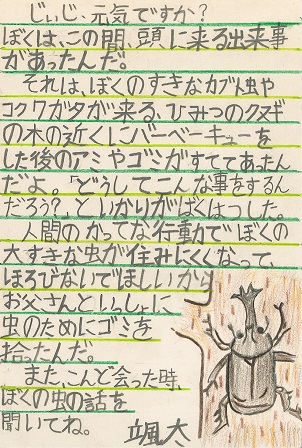 じぃじ、元気ですか?
ぼくは、この間、頭に来る出来事
があったんだ。
それは、ぼくのすきなカブト虫や
コクワガタが来る、ひみつのクヌギ
の木の近くにバーベーキューを
した後のアミやゴミがすててあったん
だよ。「どうしてこんな事をするん
だろう?」といかりがばくはつした。
人間のかってな行動でぼくの
大すきな虫が住みにくくなって
ほろびないでほしいから
お父さんといっしょに
虫のためにゴミを
拾ったんだ。
また、こんど会った時、
ぼくの虫の話を
聞いてね。 颯大